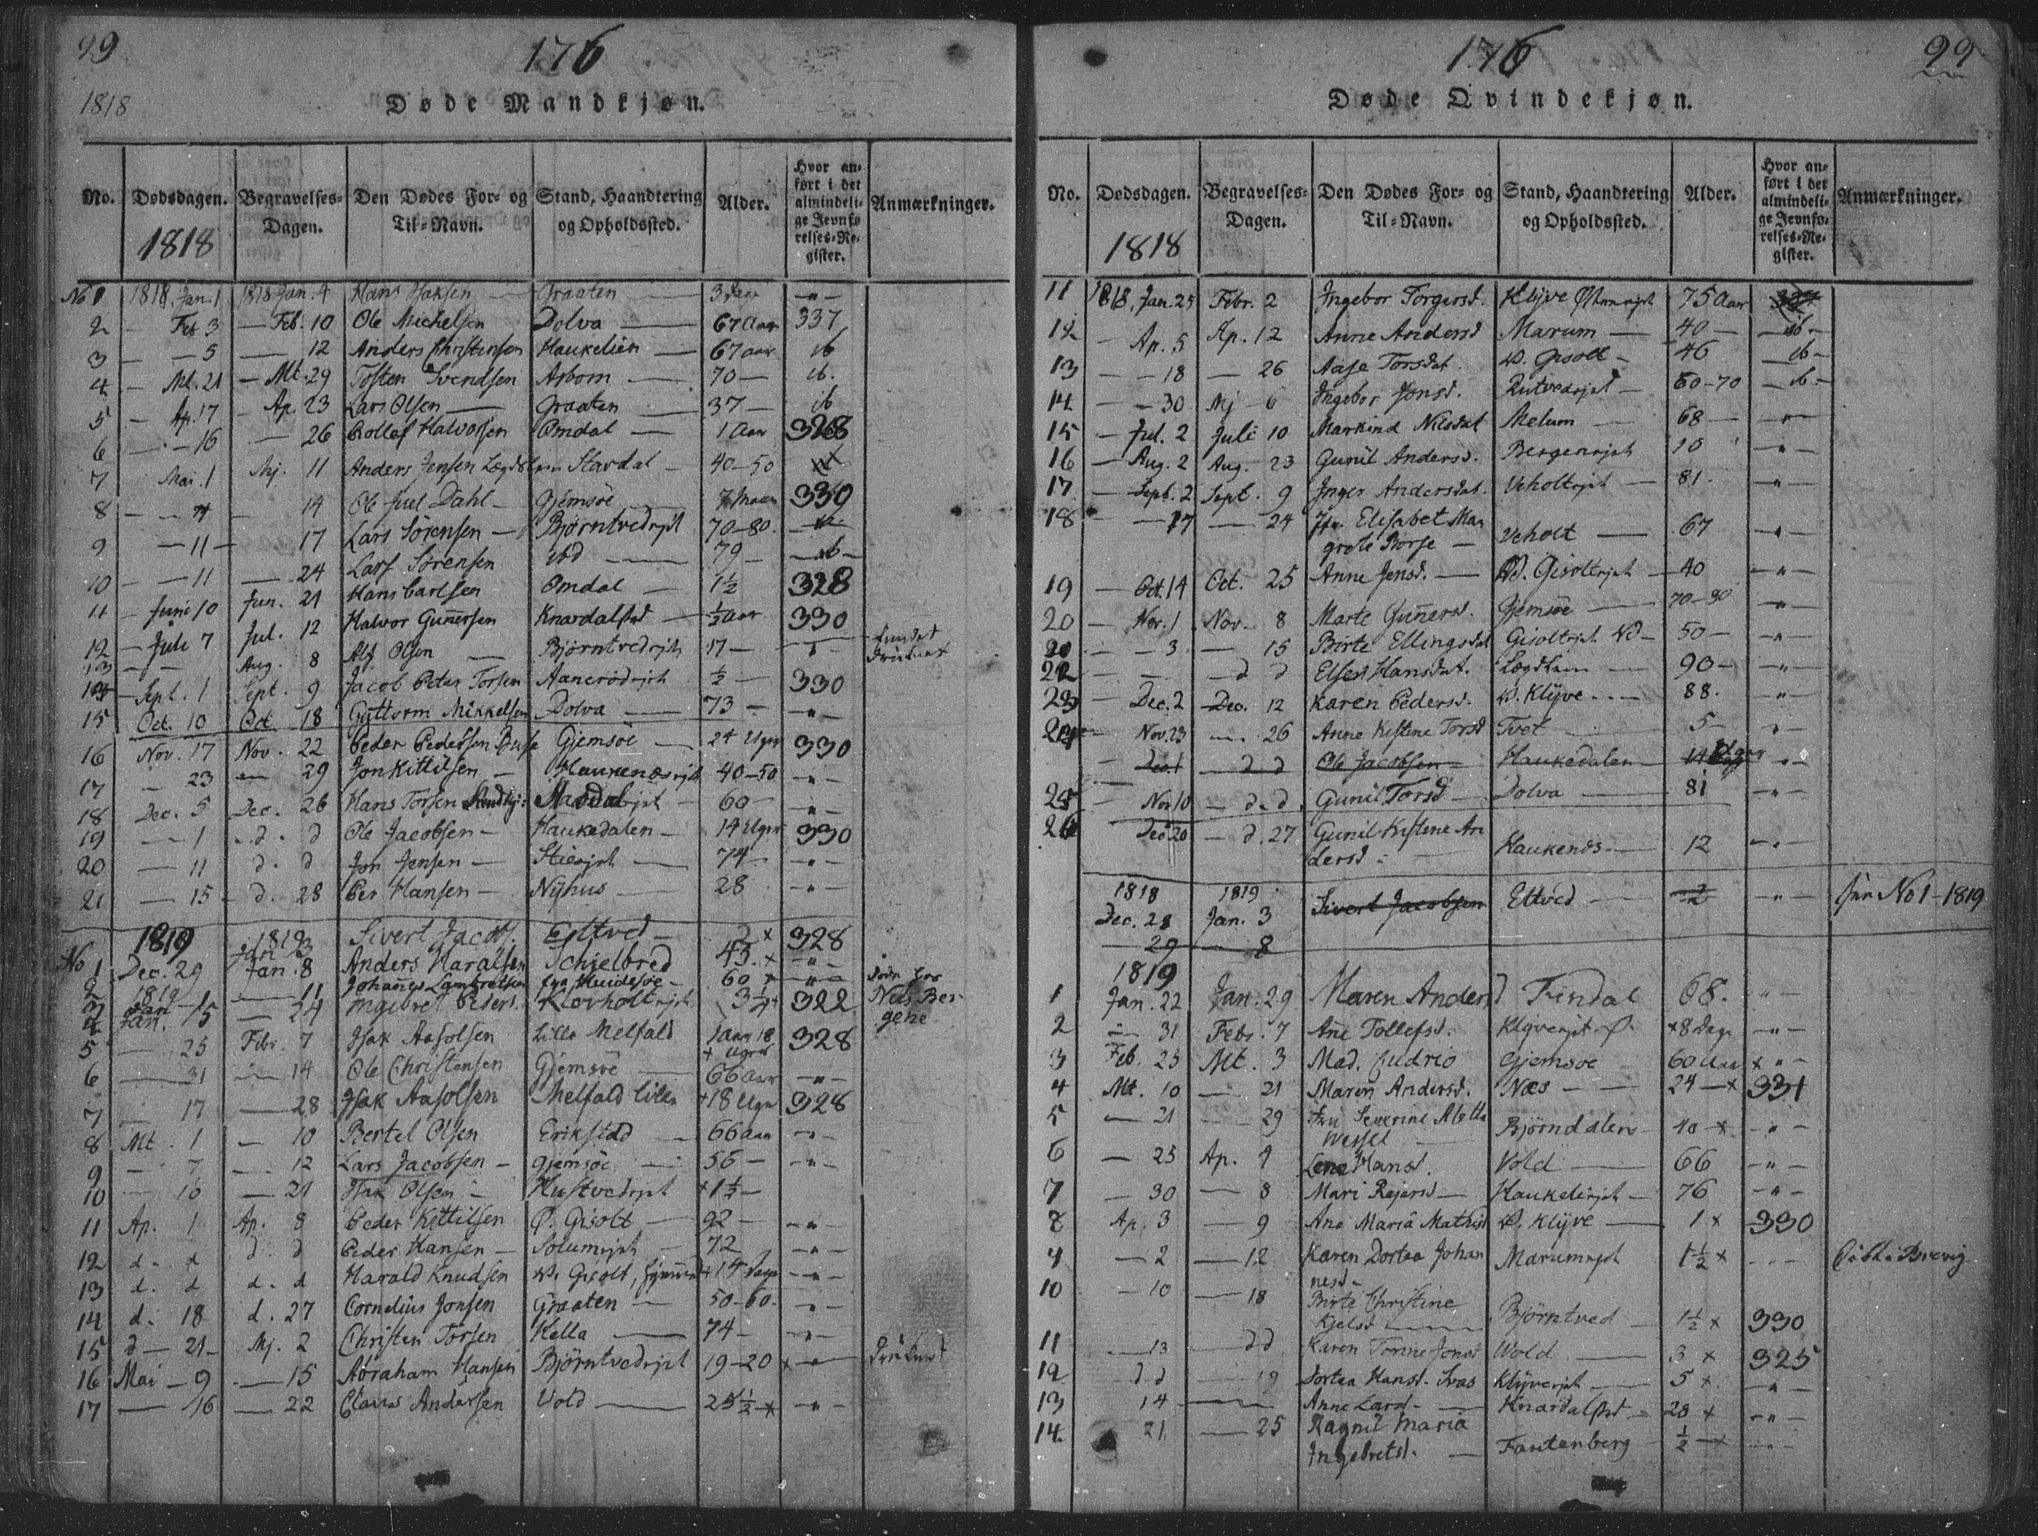 99
176
1818
Døde Mandkjøn.
No. Dødsdagen. Begravelses-Dagen. Den Dødes For- og Til-Navn. Stand, Haandtering og Opholdssted. Alder. Hvor anført i det almindelige Jevnførelses-Register. Anmærkninger.
1818
No 1 1818, Jan. 1 1818 Jan. 4 Hans Isaksen — Graaten — 3 Dage — " —
2 — Feb 3 — Feb. 10 Ole Michelsen Dolva — 67 Aar 337
3 — — 5 — 12 Anders Christensen Haukelien — 67 aar ib
4 — Mt. 21 — Mt. 29 Tosten Svendsen Aasbom — 70 — ib.
5 — Ap. 17 — Ap. 23 Lars Olsen — Graaten — 37 — ib
6 — — 16 — 26 Tollef Halvorsen Omdal — 1 Aar 328
7 Mai. 1 Mj. 11 Anders Jensen Lægdslem Stavdal — 40-50
8 — — 4 — 14 Ole Juel Dahl — Gjemsøe — 7 Maan 330
9 — 11 — 17 Lars Sørensen — Bjørntvedrjet 70-80.
10 — — 11 — 24 Lars Sørensen ibd — 79 — ib —
11 — Juni 10 Jun. 21 Hans Carlsen Omdal — 1½ 328
12 — Juli 7 Jul. 12 Halvor Gunersen Knardalstad — ½ Aar 330
13 — — Aug. 8 Alf Olsen — Bjørntvedrjet 17 — " — fundet druknet
14 Sept. 1 Sept. 9 Jacob Peter Torsen Aanerødrjet ½ — 330
15 Oct. 10 Oct. 18 Guttorm Mikkelsen Dolva — 73 — — " —
16 Nov. 17 Nov. 22 Peder Pedersen Buse Gjemsøe — 24 Uger 330
17 — 23 — 29 Jon Kittilsen — Haukenæsrjet 40-50 — " —
18 Dec. 5 Dec. 26 Hans Torsen — 60 — — " —
19 — 1 — d. d Ole Jacobsen — Haukedalen — 14 Uger 330
20 — 11 d. d Jon Jensen — Stiesrjet — 74 — — " —
21 — 15 — d. 28 Per Hansen — Nyhus — 28 — " —
1819 1819
Jan 3 Sivert Jacobs. Eltved — 2 × 328
No 1 Dec. 29 Jan. 8 Anders Haralsen Schjelbred 43. × — " —
2 1819 Jan — 11 Johanes Lambretsen fra — 60 × — " —
3 Jan. 15 — 24 Ingebret Peders. Klovholtrjet 3¼ 322 Nils Bergene.
5 — 25 Febr. 7 Isak Aasolsen Lille Melfald 1 Aar 18 Uger 328
6 — 31 — 14 Ole Christensen Gjemsøe — 66 Aar — " —
7 — 17 — 28 Isak Aasolsen Melfald lille + 18 Uger 328
8 Mt. 1 — 10 Bertel Olsen Erikstad — 66 aar — " —
9 — 7 — 12 Lars Jacobsen — Gjemsøe — 56 — — " —
10 — 16 — 21 Isak Olsen — Hustvedrjet + 1½ —
11 Ap. 1 Ap. 8 Peder Kittilsen Ø. Gisolt — 92 — — " —
12 d. d. d. d Peder Hansen — Solumrjet — 72 — " —
13 d. d d. d Harald Knudsen V. Gisolt, + 14 Dage — " —
14 d. 18 d. 27 Cornelius Jonsen Graaten — 50-60. — " —
15 d — 21 — Mj. 2 Christen Torsen Kella — 74 — — " —
16 Mai — 9 — 15 Abraham Hansen Bjørntvedrjet 19-20 × — " — Druknet
17 — 16 — 22 Claus Andersen Vold — 25½ — × — " —
176
99
Døde Qvindekjøn.
No. Dødsdagen. Begravelses-Dagen. Den Dødes For- og Til-Navn. Stand, Haandtering og Opholdssted. Alder. Hvor anført i det almindelige Jevnførelses-Register. Anmærkninger.
1818
11 1818, Jan. 25 Febr. 2 Ingebor Torgersd. Klyve 75 Aar
12 — Ap. 5 Ap. 12 Anne Andersd Marum — 40 — — ib —
13 — — 18 — 26 Aase Torsdat. V. Gisolt — 46 — ib —
14. — — 30 Mj — 6 Ingebor Jonsd. — 60-70 — ib —
15 — Jul. 2 Juli 10 Markind Nilsdat Melum — 68 — — " —
16 — Aug. 2 Aug. 23 Gunil Andersd. Bergenrjet 10 — " —
17 — Sept. 2 Sept. 9 Inger Andersdat. Veholtrjet — 81. — " —
18 — — 17 — 24 Elisabet Margrete Borse — Veholt — 67 — " —
19 — Oct. 14 Oct. 25 Anne Jensd. — V. Gisoltrjet — 40 — " —
20 — Nov. 1 Nov. 8 Marte Gunersd. Gjemsøe — 70-80 — " —
21 — — 3 — 15 Birte Ellingsdat Gisoltrjet Vd — 50 — — " —
22 — — — d d Else Hansdat. Lægdslem — 90 — — " —
23 — Dec. 2 — Dec. 12 Karen Pedersd. V. Klyve — 88. — " —
24 — Nov. 23 — 26 Anne Kistene Torsd Tvet — 5 — — " —
— Dec. 1 — d d Ole Jacobsen Haukedalen — 14 Uger — " —
25 — Nov 10 — d. d. Gunil Torsd — Dolva — 81 — " —
26 Dec. 20 — d. 27 Gunil Kistene Andersd — Haukenæs — 12 — " —
1818 1819
Dec. 28 Jan. 3 Sivert Jacobsen Eltved — 2 — — " — No 1 — 1819
— 29 — 8
1819
1 Jan. 22 Jan. 29 Maren Andersd Findal 68. — " —
2 — 31 Febr. 7 Ane Tollefsd. Klyverjet Ø. × 8 Dage — " —
3 Feb. 25 Mt. 3 Mad. Cudrio Gjemsøe 60 Aar × — " —
4 Mt. 10 — 21 Maren Andersd. Næs — 24 — × 331
5 — 21 — 29 Fru Severine Aletta Wessel Bjørndalen 40 — × — " —
6 — 25 Ap. 4 Lene Hansd. Vold — 66 — " —
7 — 30 — 8 Mari Rejersd — Haukelirjet — 76 — " —
8 Ap. 3 — 9 Ane Maria Mathisd V. Klyve — 1 × 330
9 — 2 — 12 Karen Dortea Johannesd — Marumrjet 1½ × — " — Brevig
10 — 10 — 18 Birte Christine Kjelsd — Bjørntved — 1½ × 330
11 — 13 — d d Karen Torine Jonsd Vold — 3 × 325
12 d d — 19 Dortea Hansd. Klyverjet — 5 × — " —
13 14 — Anne Larsd — Knardalstad — 28 × — " —
14. 21 — 25 Ragnil Maria Ingebretsd. — Fantenberg ½ — × — " —